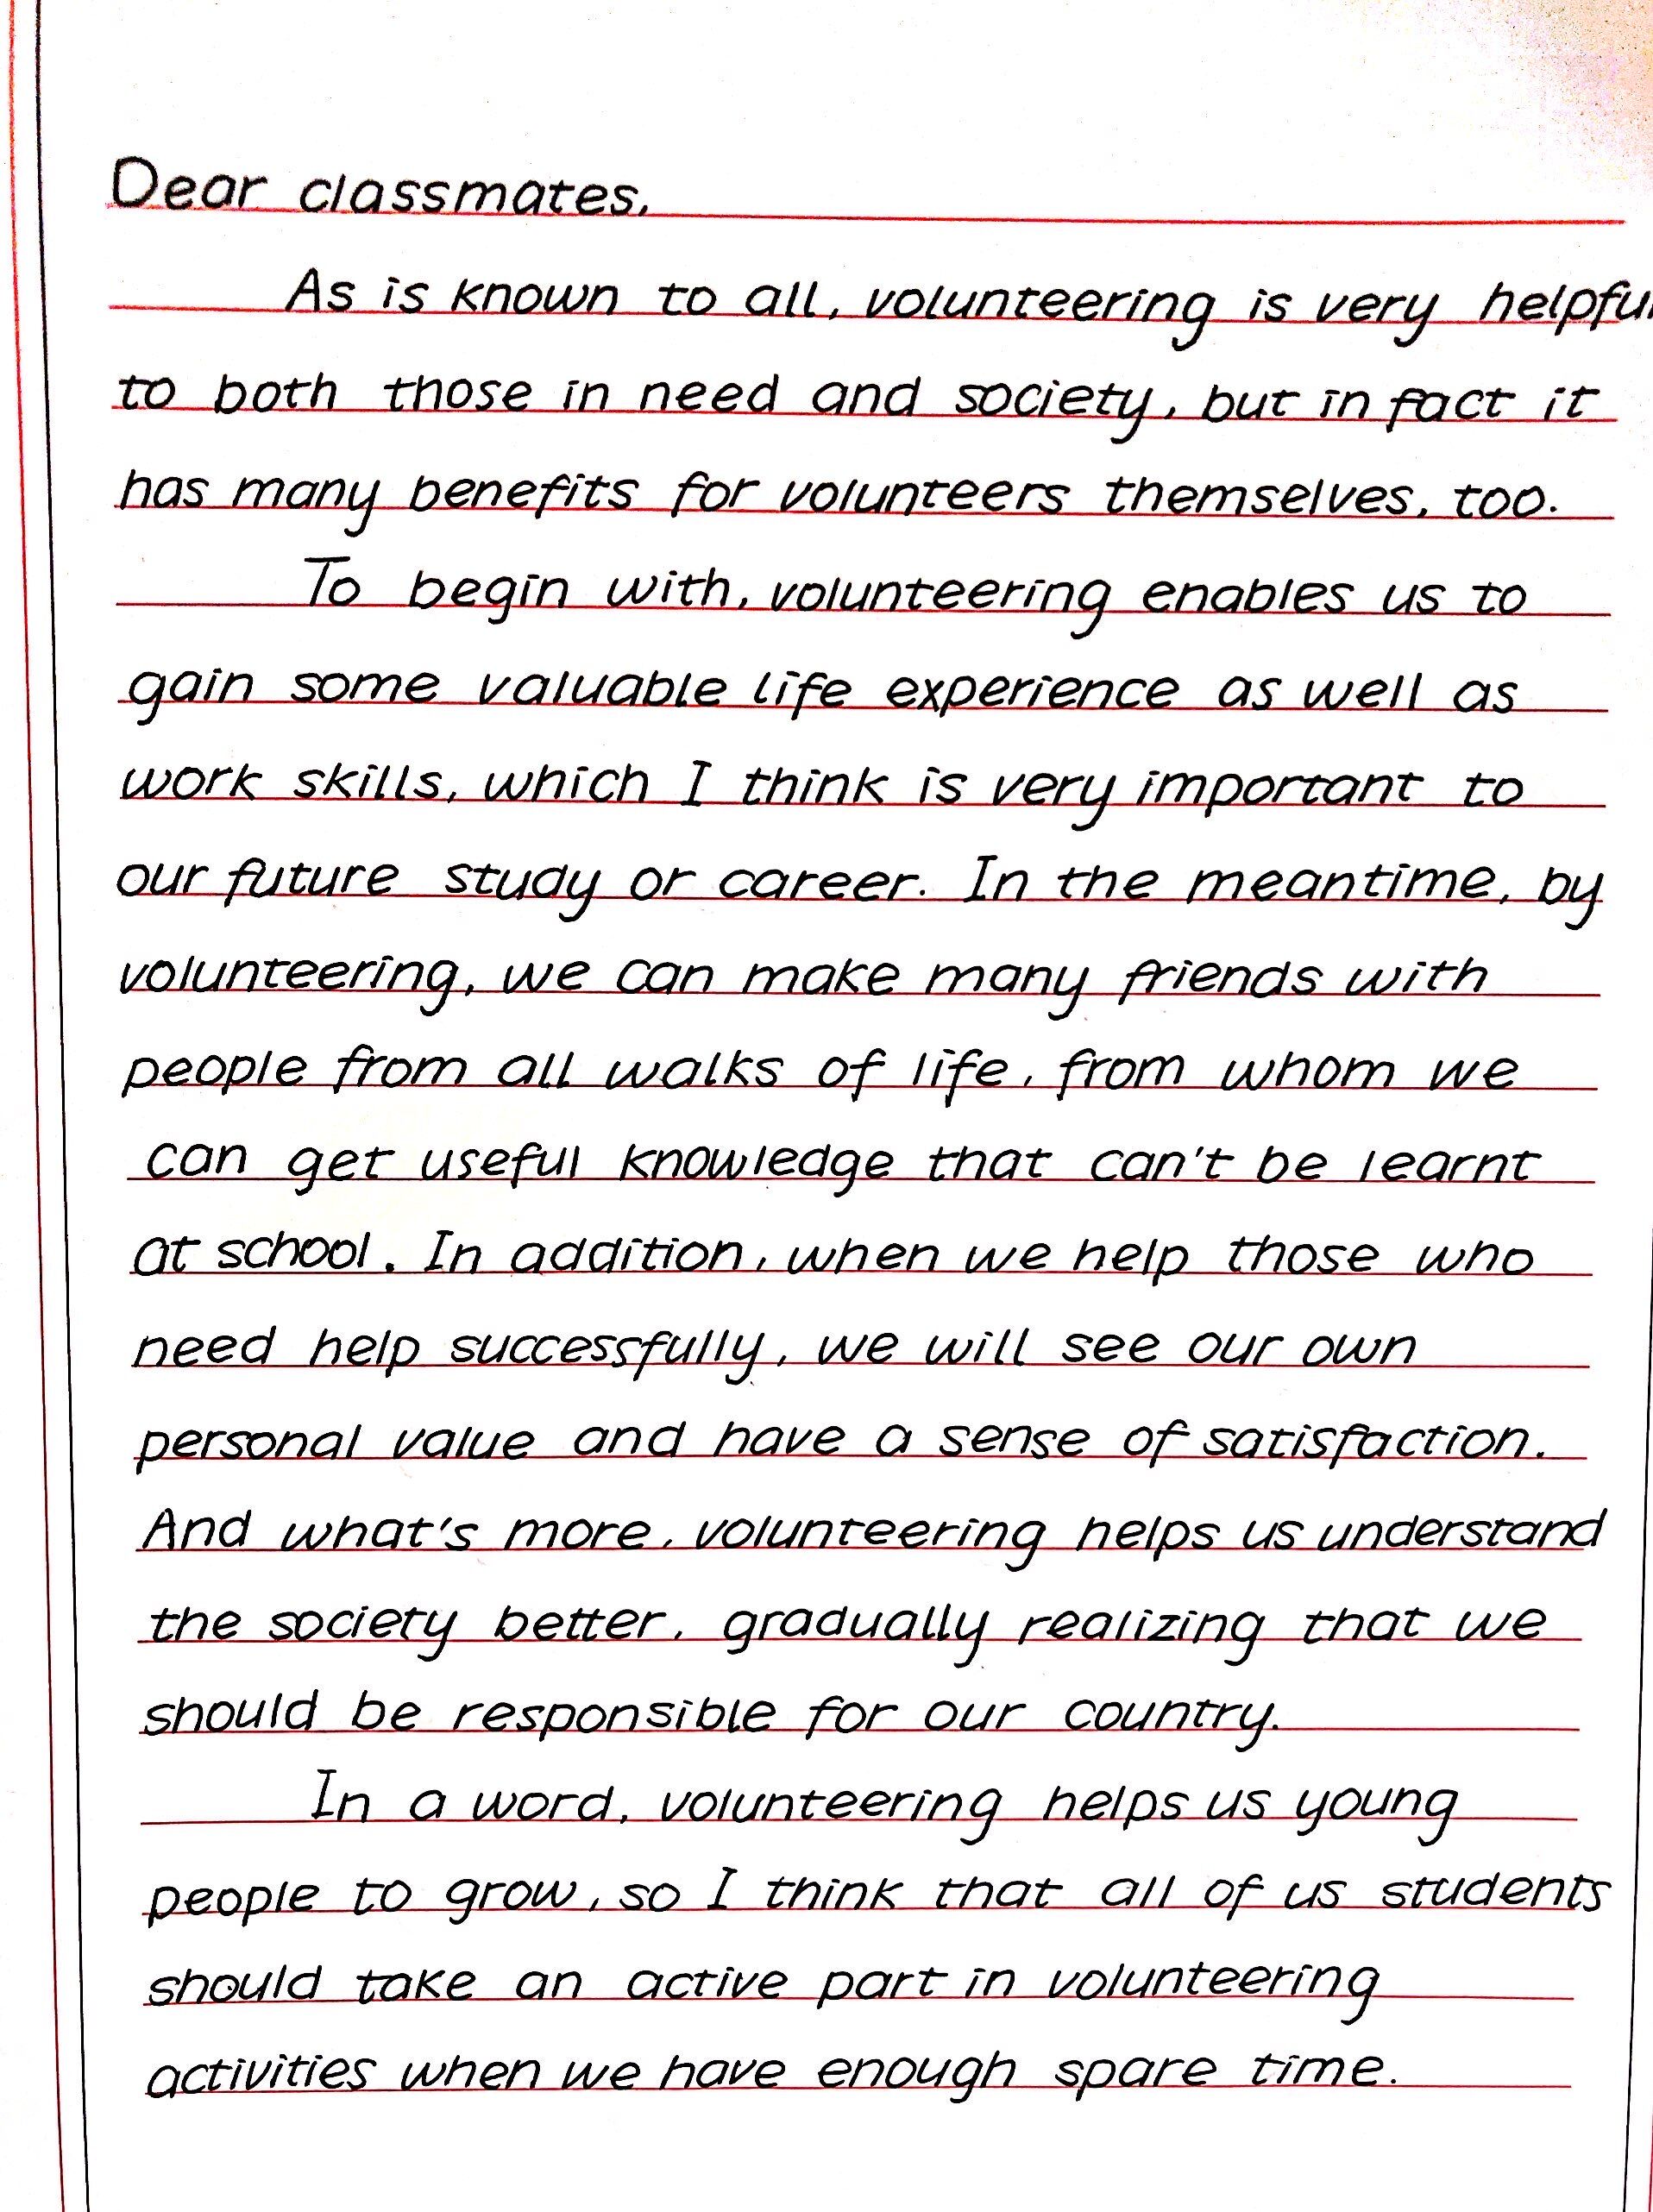 Dear classmates,
As is known to all, volunteering is very helpful
to both those in need and society, but in fact it
has many benefits for volunteers themselves, too.
To begin with, volunteering enables us to
gain some valuable life experience as well as
work skills, which I think is very important to
our future study or career. In the meantime, by
volunteering, we can make many friends with
people from all walks of life, from whom we
can get useful knowledge that can't be learnt
at school. In addition, when we help those who
need help successfully, we will see our own
personal value and have a sense of satisfaction.
And what's more, volunteering helps us understand
the society better, gradually realizing that we
should be responsible for our country.
In a word, volunteering helps us young
people to grow, so I think that all of us students
should take an active part in volunteering
activities when we have enough spare time.